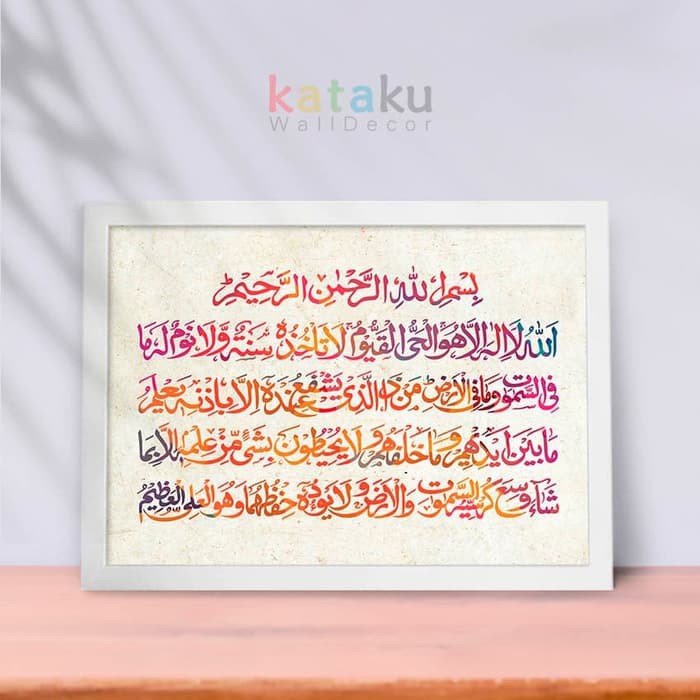 kataku
WallDecor
بِسْمِ اللهِ الرَّحْمٰنِ الرَّحِيْمِ
اَللهُ لَا اِلٰهَ اِلَّا هُوَ الْحَيُّ الْقَيُّوْمُ لَا تَأْخُذُهٗ سِنَةٌ وَّلَا نَوْمٌ لَهٗ مَا
فِى السَّمٰوٰتِ وَمَا فِى الْاَرْضِ مَنْ ذَا الَّذِيْ يَشْفَعُ عِنْدَهٗٓ اِلَّا بِاِذْنِهٖ يَعْلَمُ
مَا بَيْنَ اَيْدِيْهِمْ وَمَا خَلْفَهُمْ وَلَا يُحِيْطُوْنَ بِشَيْءٍ مِّنْ عِلْمِهٖٓ اِلَّا بِمَا
شَآءَ وَسِعَ كُرْسِيُّهُ السَّمٰوٰتِ وَالْاَرْضَ وَلَا يَـُٔوْدُهٗ حِفْظُهُمَا وَهُوَ الْعَلِيُّ الْعَظِيْمُ